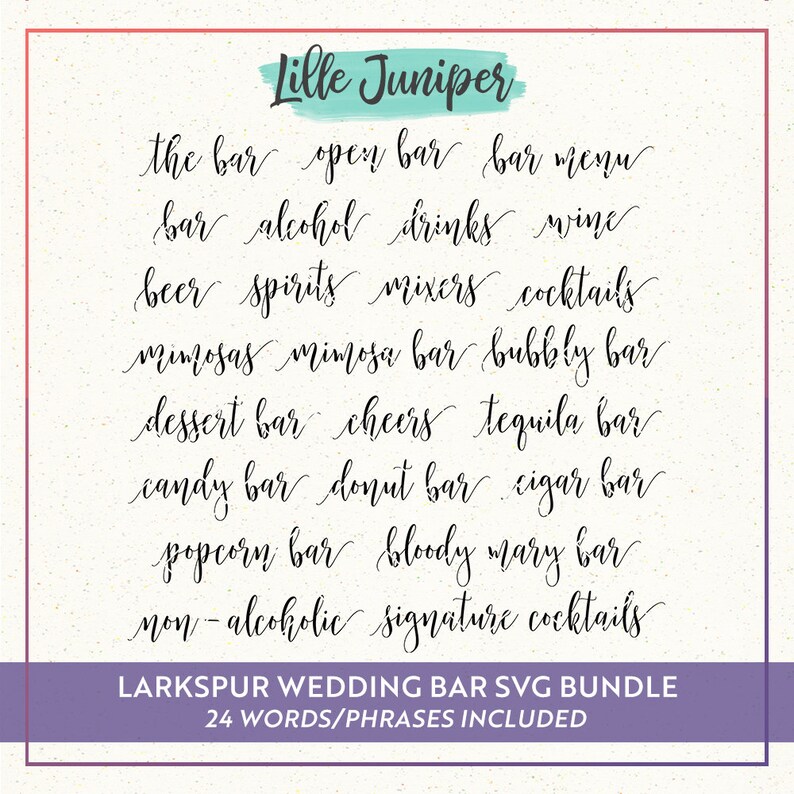 Lille Juniper
the bar open bar bar menu
bar alcohol drinks wine
beer spirits mixers cocktails
mimosas mimosa bar bubbly bar
dessert bar cheers tequila bar
candy bar donut bar cigar bar
popcorn bar bloody mary bar
non-alcoholic signature cocktails
LARKSPUR WEDDING BAR SVG BUNDLE
24 WORDS/PHRASES INCLUDED